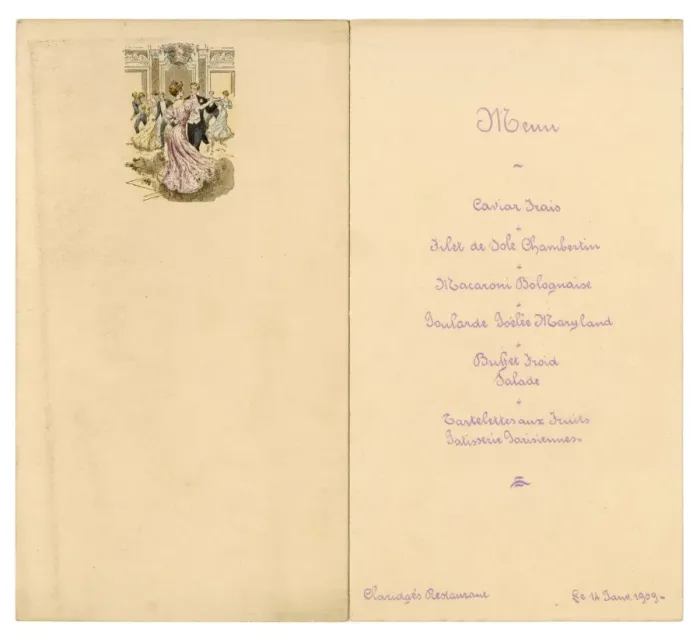 Menu
Caviar Frais
Filet de Sole Chambertin
Macaroni Bolognaise
Poularde Poêlée Maryland
Buffet Froid
Salade
Tartelettes aux Fruits
Patisserie Parisiennes
Claridges Restaurant
Le 14 Janv. 1909